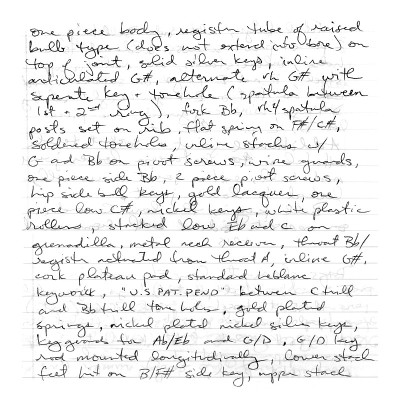 one piece body, register tube of raised
bulb type (does not extend into bore) on
top of joint, solid silver keys, inline
articulated G#, alternate rh G# with
seperate key + tonehole (spatula between
1st + 2nd ring), fork Bb, rh4 spatula
posts set on rib, flat spring on F#/C#,
soldered toneholes, inline stacks w/
G and Bb on pivot screws, wire guards,
one piece side Bb, 2 piece pivot screws,
hip side bell keys, gold lacquer, one
piece low C#, nickel keys, white plastic
rollers, stacked low Eb and C on
grenadilla, metal neck receiver, throat Bb/
register activated from throat A, inline G#,
cork plateau pad, standard leblanc
keywork, "U.S PAT. PEND" between C trill
and Bb trill tone holes, gold plated
springs, nickel plated nickel silver keys,
keyguards for Ab/Eb and G/D, G/D key
rod mounted longitudinally, lower stack
feet hit on B/F# side key, upper stack